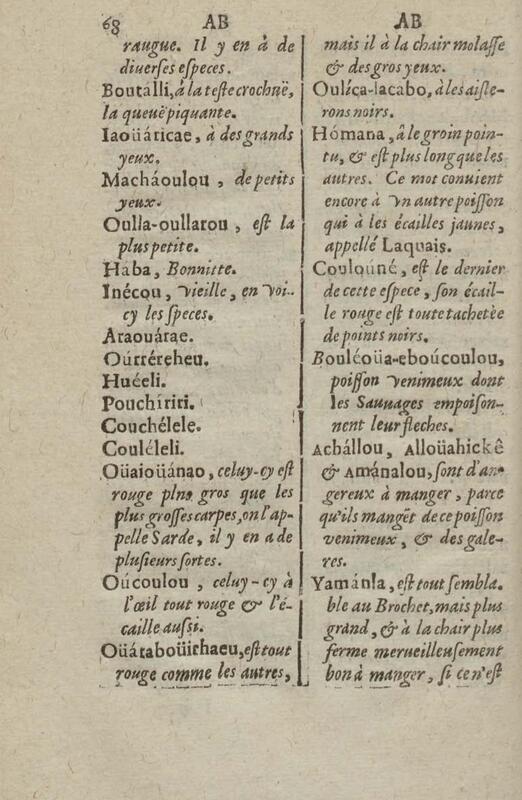 68 AB
raugue. Il y en à de
diuerſes eſpeces.
Boutálli, à la teſte crochuë,
la queuë piquante.
Iaoüáricae, à des grands
yeux.
Macháoulou, de petits
yeux.
Oulla-oullarou, eſt la
plus petite.
Hába, Bonnitte.
Inécou, Vieille, en voi-
cy les ſpeces.
Araouárae.
Oúrréreheu.
Huéeli.
Pouchíriri.
Couchélele.
Couléleli.
Oüaioüánao, celuy-cy eſt
rouge plus gros que les
plus groſſes carpes, on l'ap-
pelle Sarde, il y en a de
pluſieurs ſortes.
Oúcoulou, celuy-cy à
l'œil tout rouge & l'é-
caille auſſi.
Oüátaboüirhaeu, eſt tout
rouge comme les autres,
AB
mais il à la chair molaſſe
& des gros yeux.
Oulíca-lacabo, à les aiſle-
rons noirs.
Hómana, â le groin poin-
tu, & eſt plus long que les
autres. Ce mot conuient
encore à vn autre poiſſon
qui à les écailles jaunes,
appellé Laquais.
Coulouné, eſt le dernier
de cette eſpece, ſon écail-
le rouge eſt toute tachetée
de points noirs.
Boulécoüa-eboúcoulou,
poiſſon venimeux dont
les Sauuages empoiſon-
nent leur fleches.
Achállou, Alloüahickê
& Amánalou, ſont d'an-
gereux à manger, parce
qu'ils mangẽt de ce poiſſon
venimeux, & des gale-
res.
Yamánla, eſt tout ſembla.
ble au Brochet, mais plus
grand, & à la chair plus
ferme merueilleuſement
bon à manger, ſi ce n'eſt